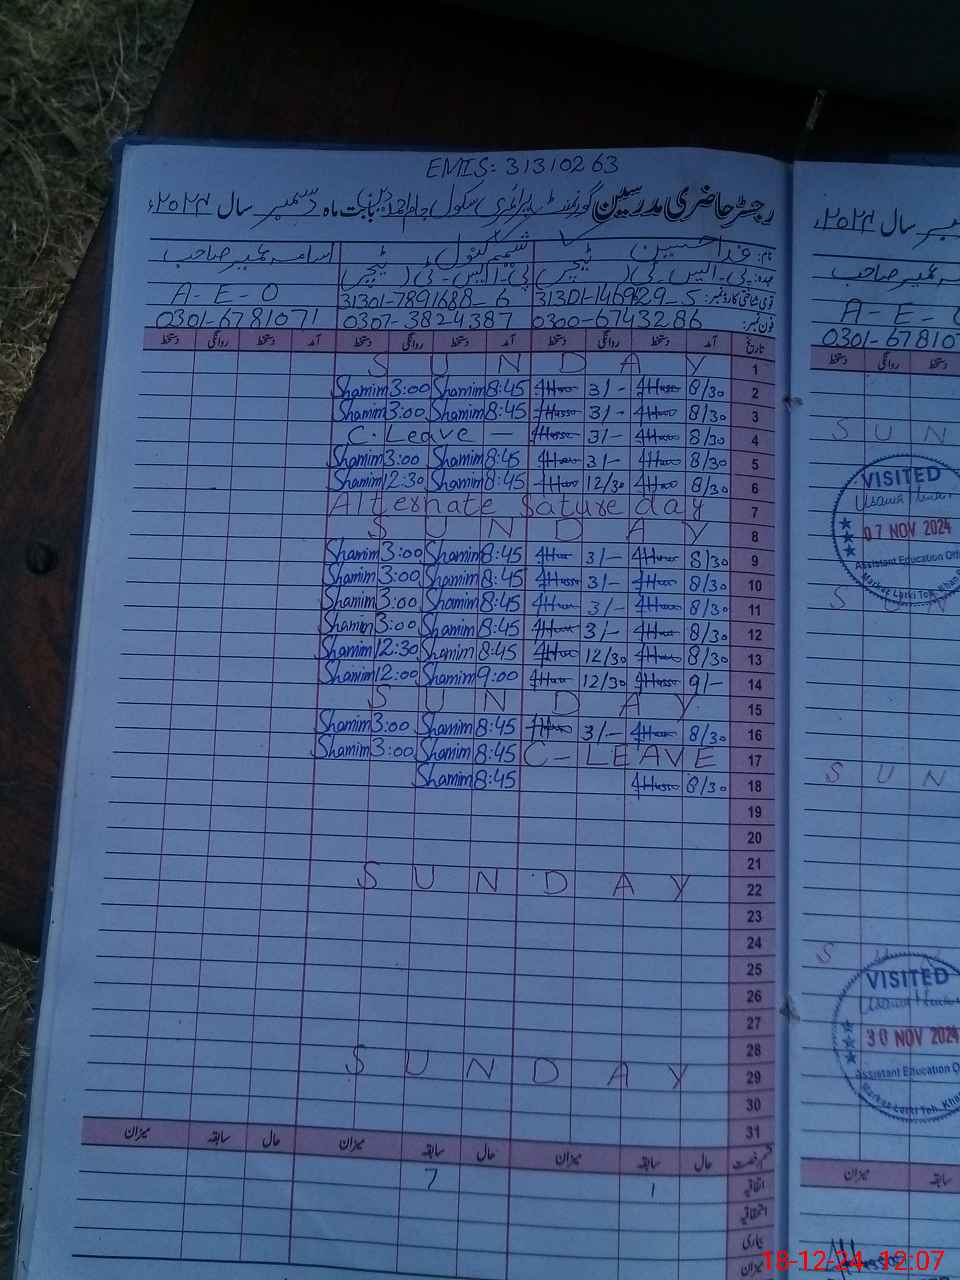 EMIS: 31310263
رجسٹر حاضری مدرسین گورنمنٹ پرائمری سکول بابت ماہ دسمبر سال ۲۰۲۴ء
نام: فدا حسین ٹیچر شمیم کنول ٹیچر اسامہ صاحب
عہدہ: پی۔ایس۔ٹی پی۔ایس۔ٹی
قومی شناختی کارڈ نمبر: 31301-146929-5 31301-7891688-6 A-E-O
فون نمبر: 0300-6743286 0307-3824387 0301-6781071
تاریخ آمد دستخط روانگی دستخط آمد دستخط روانگی دستخط آمد دستخط روانگی دستخط
1 SUNDAY
2 8/30 3/- 8:45 Shamim 3:00 Shamim
3 8/30 3/- 8:45 Shamim 3:00 Shamim
4 8/30 3/- C. Leave —
5 8/30 3/- 8:45 Shamim 3:00 Shamim
6 8/30 12/30 8:45 Shamim 12:30 Shamim
7 Alternate Sature day
8 SUNDAY
9 8/30 3/- 8:45 Shamim 3:00 Shamim
10 8/30 3/- 8:45 Shamim 3:00 Shamim
11 8/30 3/- 8:45 Shamim 3:00 Shamim
12 8/30 3/- 8:45 Shamim 3:00 Shamim
13 8/30 12/30 8:45 Shamim 12:30 Shamim
14 9/- 12/30 9:00 Shamim 12:00 Shamim
15 SUNDAY
16 8/30 3/- 8:45 Shamim 3:00 Shamim
17 C-LEAVE 8:45 Shamim 3:00 Shamim
18 8/30 8:45 Shamim
19
20
21
22 SUNDAY
23
24
25
26
27
28
29 SUNDAY
30
31
قسم رخصت حال سابقہ میزان حال سابقہ میزان حال سابقہ میزان
اتفاقیہ 1 7
استحقاقیہ
بیماری
میزان
سال ۲۰۲۴ء
A-E-
0301-67810
دستخط روانگی دستخط
SUN
VISITED
07 NOV 2024
Assistant Education Offi
SUN
SUN
SUN
VISITED
30 NOV 2024
Assistant Education O
میزان سابقہ
18-12-24 12:07